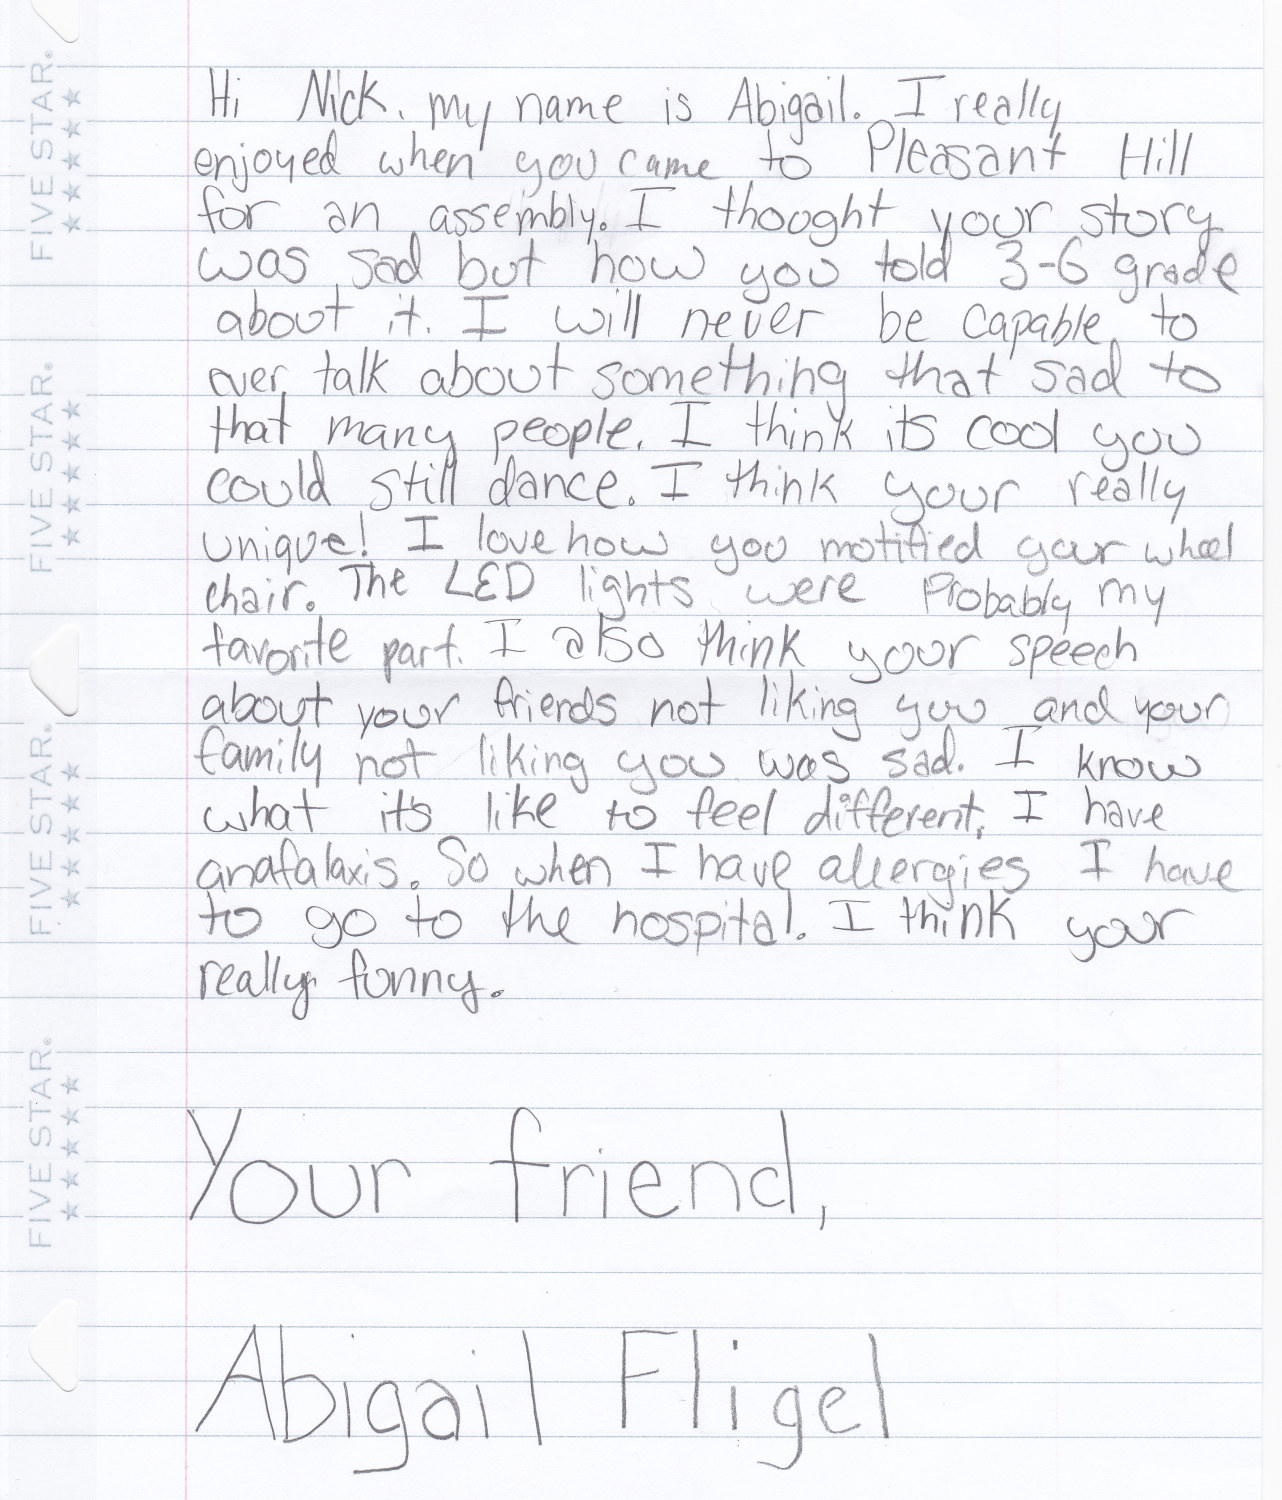 Hi Nick. my name is Abigail. I really
enjoyed when you came to Pleasant Hill
for an assembly. I thought your story
was sad but how you told 3-6 grade
about it. I will never be capable to
ever talk about something that sad to
that many people. I think its cool you
could still dance. I think your really
unique! I love how you motified your wheel
chair. The LED lights were Probably my
favorite part. I also think your speech
about your friends not liking you and your
family not liking you was sad. I know
what it's like to feel different, I have
anafalaxis. So when I have allergies I have
to go to the hospital. I think your
really funny.
Your friend,
Abigail Fligel
FIVE STAR.
FIVE STAR.
FIVE STAR.
FIVE STAR.